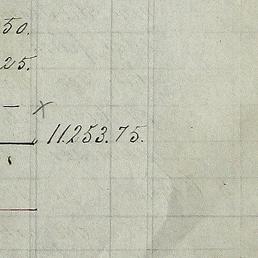 50.
25.
— x
11.253.75.